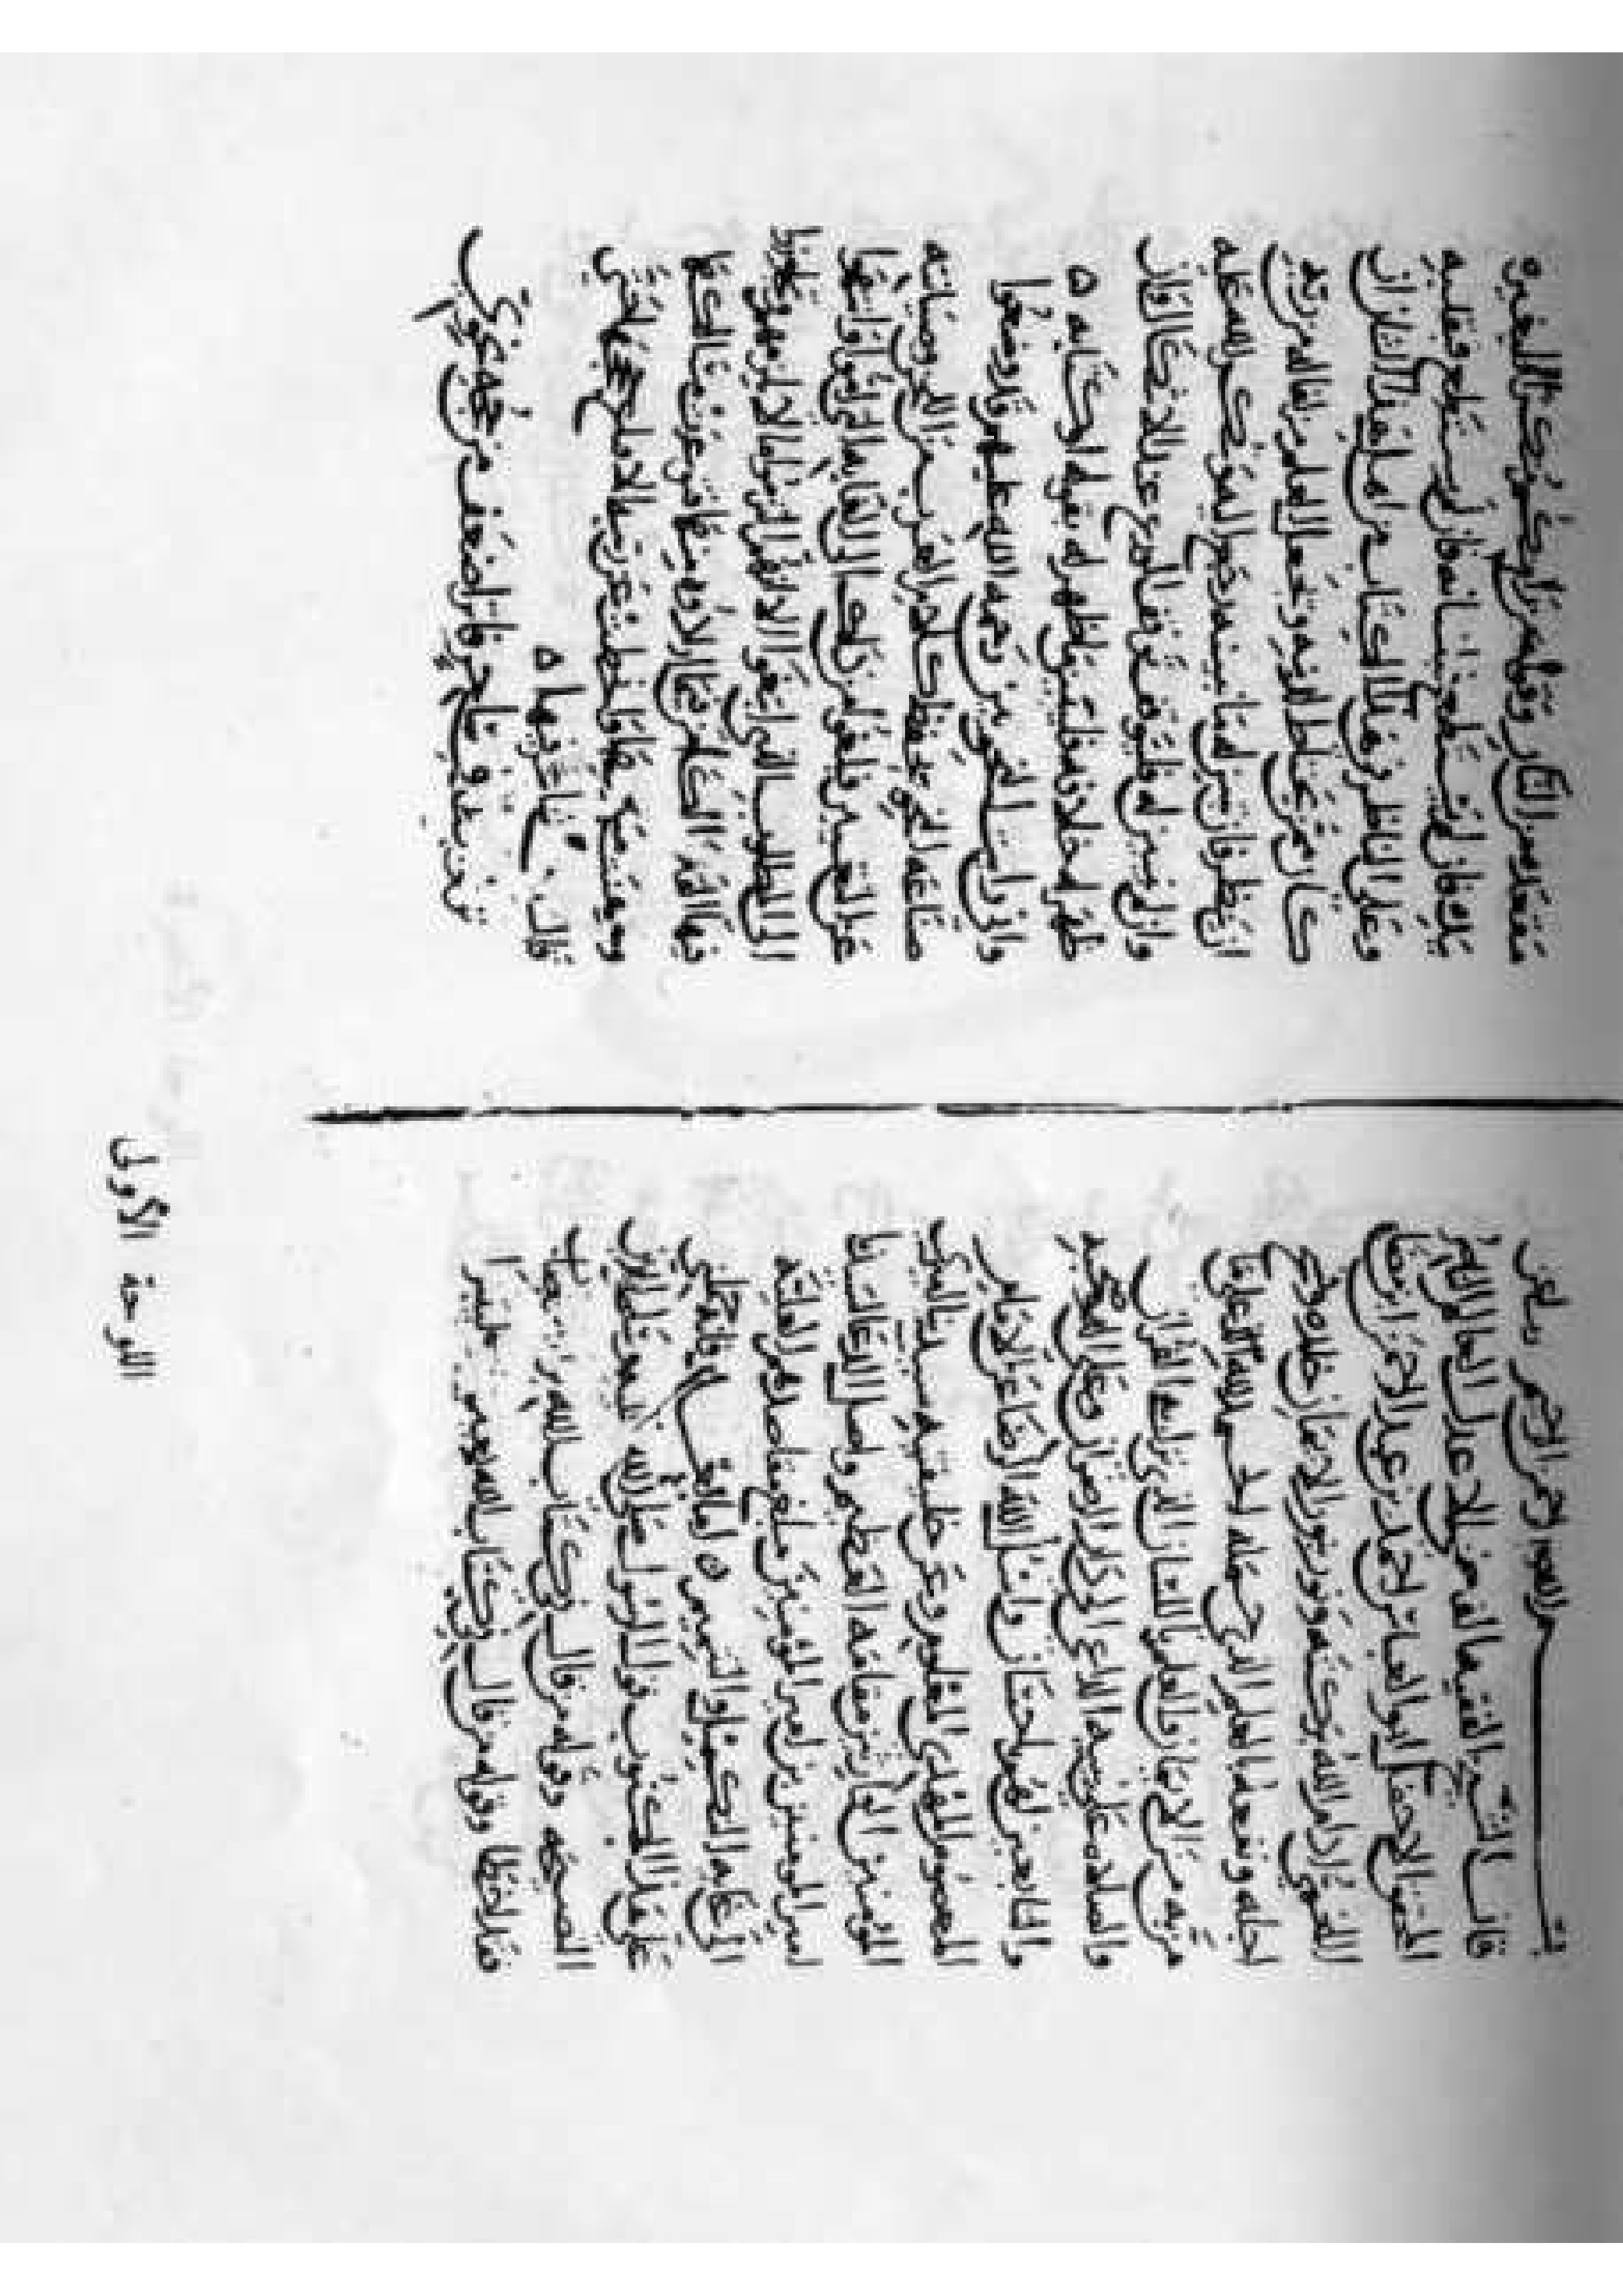 بسم الله الرحمن الرحيم رب اعن
قال الشيخ الفقيه
ابو العباس احمد بن عبد الرحمن ابن مضا
اللخمي ادام الله بركته ونور بنور الايمان
الحمد لله على ما
من به من الايمان والعلم باللسان الذي نزل به القران
والصلاة على نبيه الداعي الى دار الرضوان وعلى اله وصحبه
والتابعين لهم باحسان واسال الله الرضا عن الامام
المعصوم المهدي المعلوم وعن خليفتيه سيدينا اميري
المومنين الوارثين مقامه العظيم واصل الدعا لسيدنا
امير المومنين بن امير المومنين مبلغ مقاصدهم العلية
الى غاية التكميل والتتميم ٥ اما بعد فانه حملني
على هذا المكتوب قول الرسول صلى الله عليه وسلم الدين
النصيحة وقوله من قال في كتاب الله برايه فاصاب
فقد اخطا وقوله من قال في كتاب الله بغير علم فليتبوا
مقعده من النار وقوله من راى منكم منكرا فليغيره
بيده فان لم يستطع فبلسانه فان لم يستطع فبقلبه
وعلى الناظر في هذا الكتاب من اهل هذا الشان ان
كان ممن يحتاط لدينه ويجعل العلم مزلفا له من ربه
ان ينظر فان تبين له ما نبينه رجع اليه وشكر الله عليه
وان لم يتبين له فليتوقف توقف الورع عند الاشكال وان
ظهر له خلافه فليبين ما ظهر له بقول او كتابة ٥
واني رايت النحويين رحمة الله عليهم قد وضعوا
صناعة النحو لحفظ كلام العرب من اللحن وصيانته
عن التغيير فبلغوا من ذلك الى الغاية التي اموا وانتهوا
الى المطلوب الذي ابتغوا الا انهم التزموا ما لا يلزمهم وتجاوزوا
فيها القدر الكافي فيما ارادوه منها فتوعرت مسالكها
ووهنت مبانيها وانحطت عن رتبة الاقناع حججها حتى
قال شاعر فيها ٥
ترنو بطرف ساحر فاتر اضعف من حجة نحوي
اللوحة الأولى